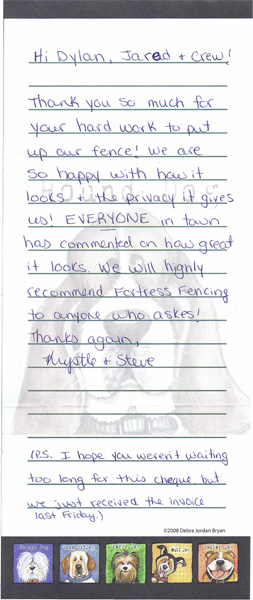 Hi Dylan, Jared + Crew!
Thank you so much for
your hard work to put
up our fence! We are
so happy with how it
looks + the privacy it gives
us! EVERYONE in town
has commented on how great
it looks. We will highly
recommend Fortress Fencing
to anyone who askes!
Thanks again,
Myrtle + Steve
(P.S. I hope you weren't waiting
too long for this cheque but
we just received the invoice
last Friday.)
©2008 Debra Jordan Bryan